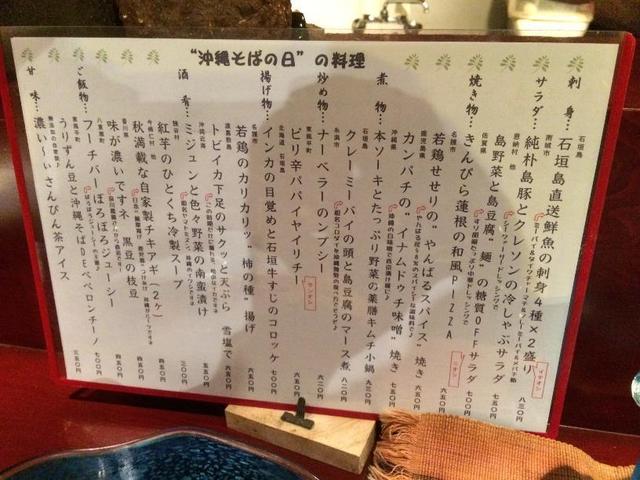 "沖縄そばの日"の料理
刺身…石垣島直送鮮魚の刺身4種×2盛り
石垣島
サラダ…純朴島豚とクレソンの冷しゃぶサラダ 八三〇円
南城市
島野菜と島豆腐"麺"の糖質OFFサラダ 七〇〇円
恩納村 他
焼き物…きんぴら蓮根の和風PIZZA 六五〇円
佐賀県
若鶏せせりの"やんばるスパイス"焼き 六五〇円
名護市
カンパチの"イナムドゥチ味噌"焼き 七五〇円
鹿児島県
煮物…本ソーキとたっぷり野菜の薬膳キムチ小鍋 九三〇円
沖縄県
クレーミーバイの頭と島豆腐のマース煮 八二〇円
石垣島
炒め物…ナーベーラーのンブシー 六二〇円
糸満市
ピリ辛パパイヤイリチー 六五〇円
東風平町
揚げ物…インカの目覚めと石垣牛すじのコロッケ 七〇〇円
北海道 石垣島
若鶏のカリカリッ"柿の種"揚げ 六五〇円
名護市
トビイカ下足のサクッと天ぷら 雪塩で 六五〇円
渡嘉敷島
酒肴…ミジュンと色々野菜の南蛮漬け 五五〇円
沖縄近海
紅芋のひとくち冷製スープ 三〇〇円
読谷村
秋満載な自家製チキアギ(2ケ) 四五〇円
今帰仁村 他
味が濃いですネ 黒豆の枝豆 四五〇円
香川県
ご飯物…フーチバーぼろぼろジューシー 四五〇円
八重瀬町
うりずん豆と沖縄そばDEペペロンチーノ 七〇〇円
東風平町
甘味…濃いーぃさんぴん茶アイス 三五〇円